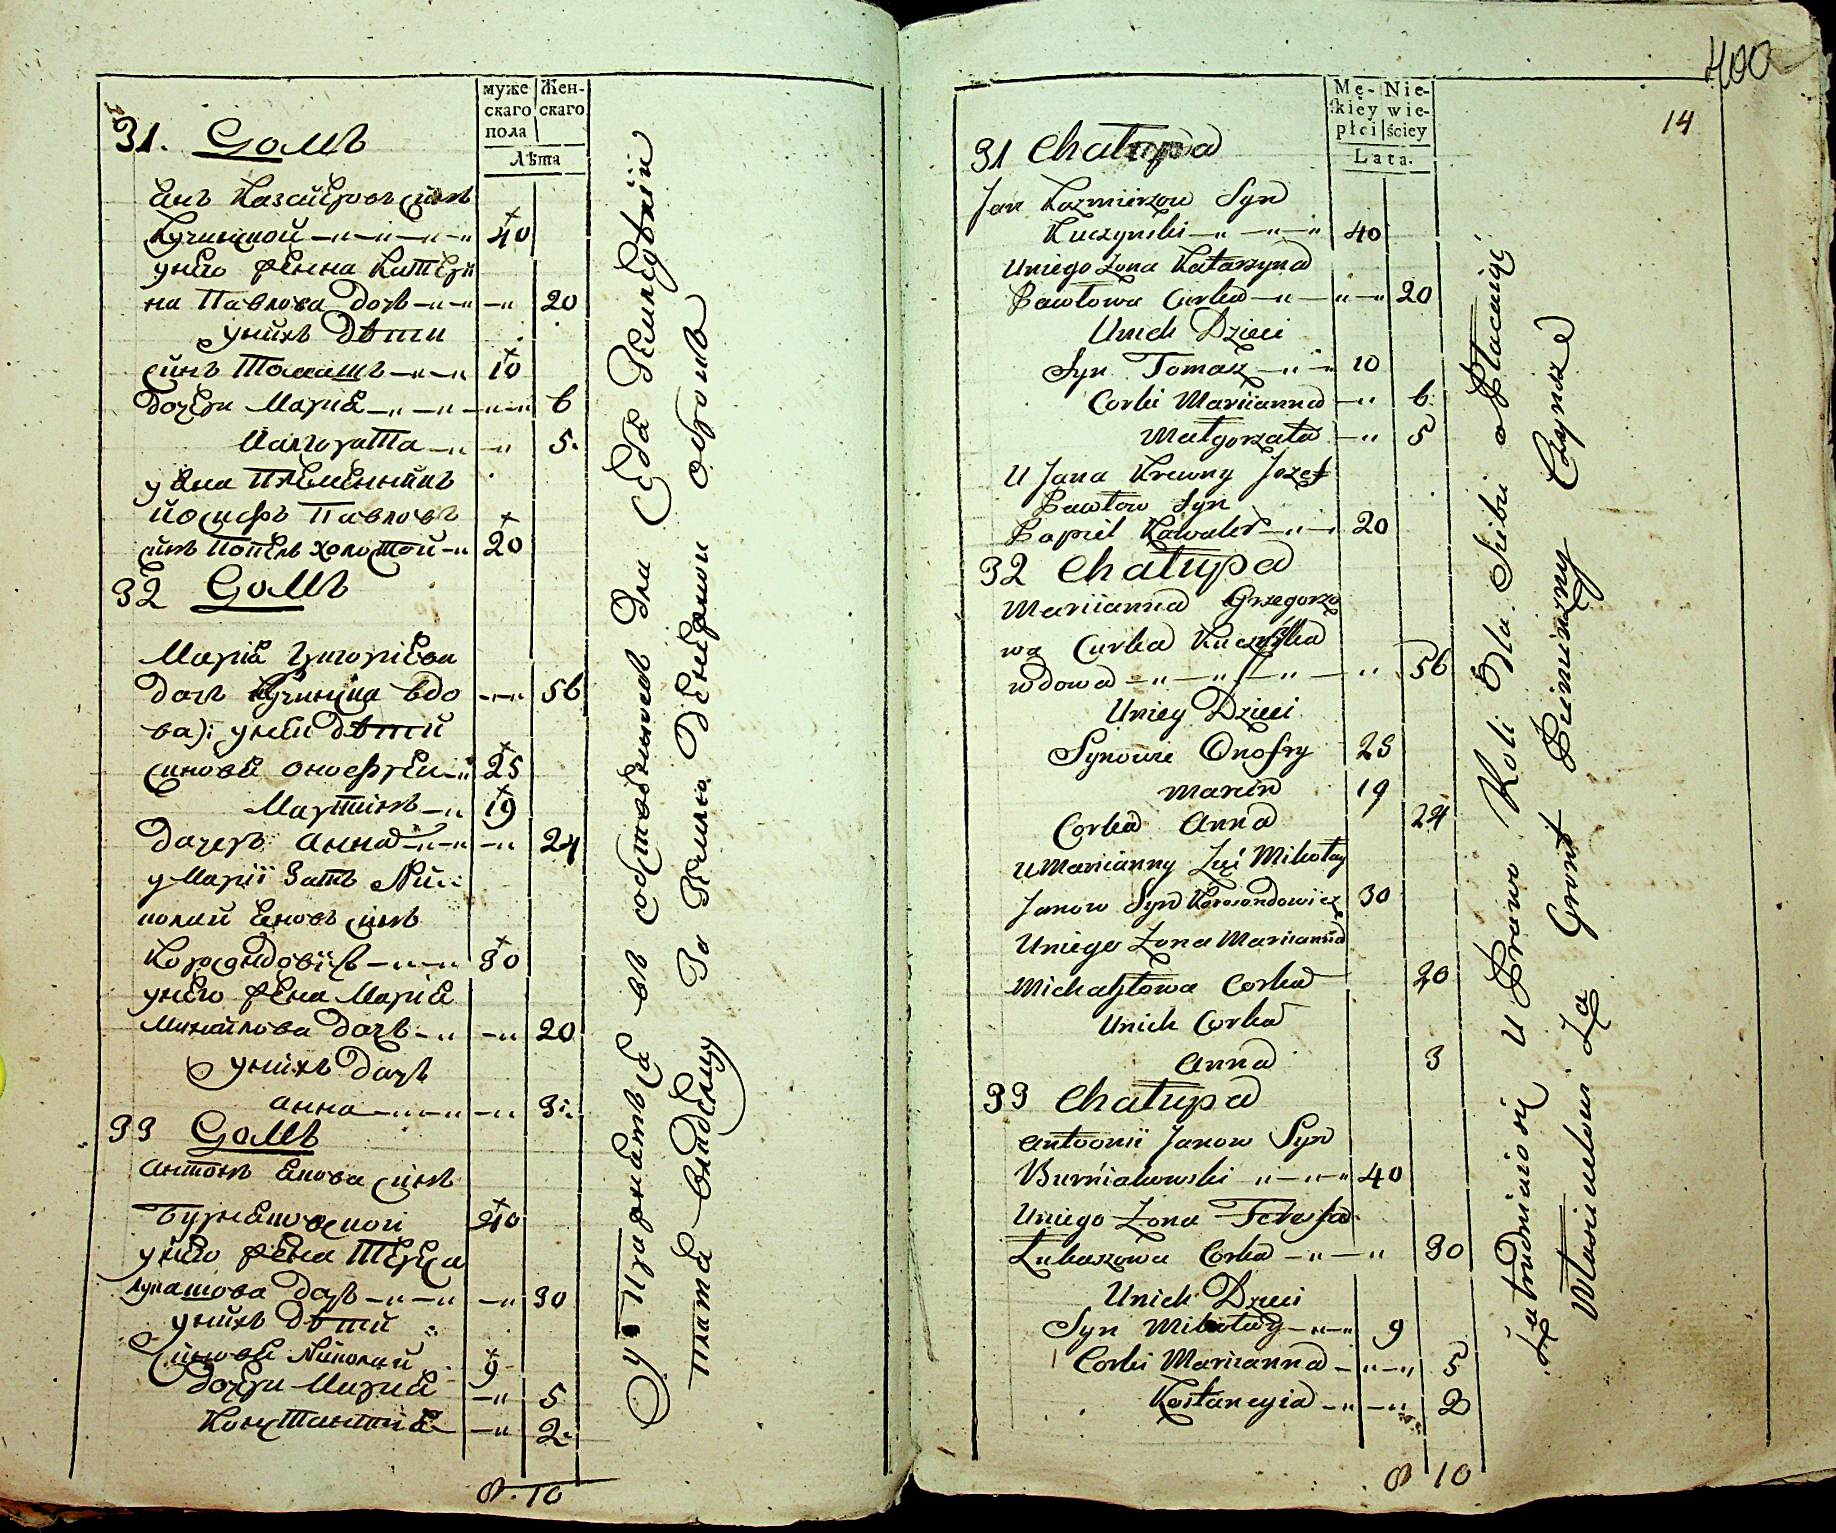 муже
скаго
пола
Жен-
скаго
Лѣта
31. Домъ
Янъ Казимеровъ синъ
Кучинской 40
у него жена Катери
на Павлова дочь 20
у нихъ Дѣти
синъ Томашъ 10
дочери Мария 6
Малгората 5.
у Яна племенникъ
Йосифъ Павловъ
синъ холостой 20
32 Домъ
Марія Григорієва
дочь вдо 56
ва): у ней дѣти
синовя Онофреи 25
Мартинъ 19
дочерь Анна 24
у Марїї зать Ний
колай Яновъ синъ
30
у него жена Марія
Михайлова дочь 20
у нихъ дочь
анна 3
33 Домъ
антонъ Янова синъ
40
у него жена Тереса
лукашова дочь 30
у нихъ Дѣти
Синовя Николай 9
дочери Марія 5
Констанція 2.
0. 10
Упражнятся въ собственной для себя земледѣлїи
плата владельцу За Землю Денежной оброкъ
400
14
Mę-
skiey
płci
Nie-
wie-
ściey
Lata.
31 Chałupa
Jan Kazmierzow Syn
Kuczynski 40
Uniego Zona Katarzyna
Pawłowa Curka 20
Unich Dzieci
Syn Tomasz 10
Corki Mariianna 6
Małgorzata 5
U Jana Krewny Jozef
Pawłow Syn
Kawaler 20
32 Chałupa
Mariianna Grzegorzo
wa Curka
wdowa 56
Uniey Dzieci
Synowie Onofry 25
Marcin 19
Corka Anna 24
U Marianny Zięć Mikołay
Janow Syn 30
Uniego Zona Mariianna
Michayłowa Corka 20
Unich Corka
Anna 3
33 Chałupa
Antonii Janow Syn
Burniakowski 40
Uniego Zona Teressa
Łukaszowa Corka 30
Unich Dzieci
Syn Mikołay 9
Corki Mariianna 5
Kostancyia 2
0 10
Zatrudniaio się Uprawo Roli Dla Siebie a Płacaiąc
Włascicielowi Za Gront Pieniężny Czynsz